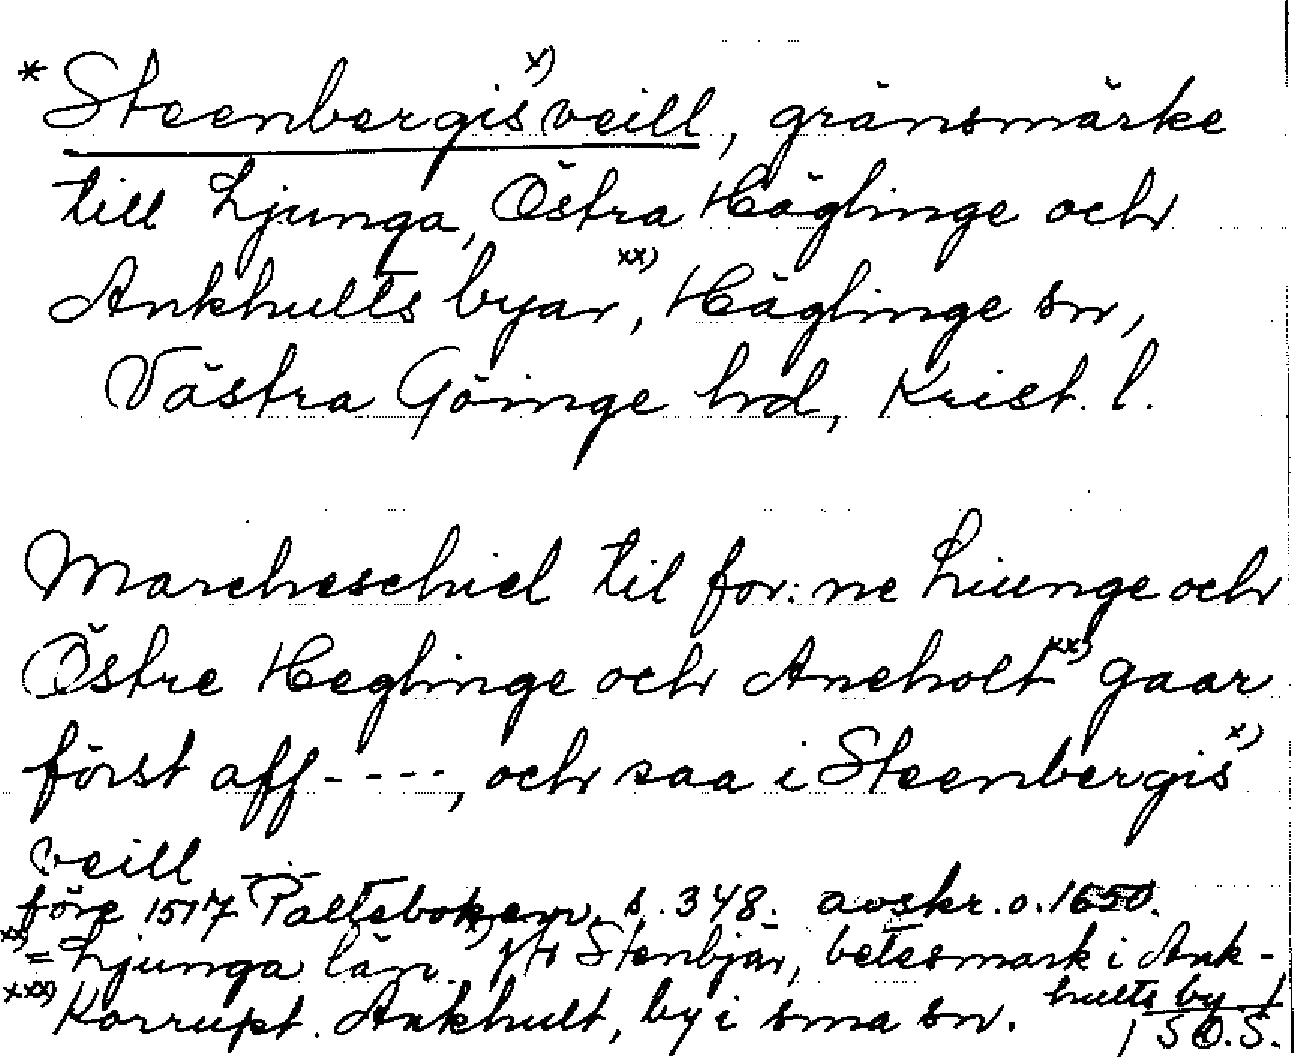 * Steenbergis x) veill, gränsmärke
till Ljunga, Östra Häglinge och
Ankhults byar xx), Häglinge sn,
Västra Göinge hrd, Krist. l.
Marcheschiel til for: ne Liunge och
Östre Heglinge och Aneholt xx) gaar
först aff ----, och saa i Steenbergis x)
veill ---
före 1517 Palteboken, s. 348. avskr. o. 1650.
xx) = Ljunga län. x) Jfr Stenbjär, betesmark i Ank-
hults by
xxx) Korrupt. Ankhult, by i sma sn.